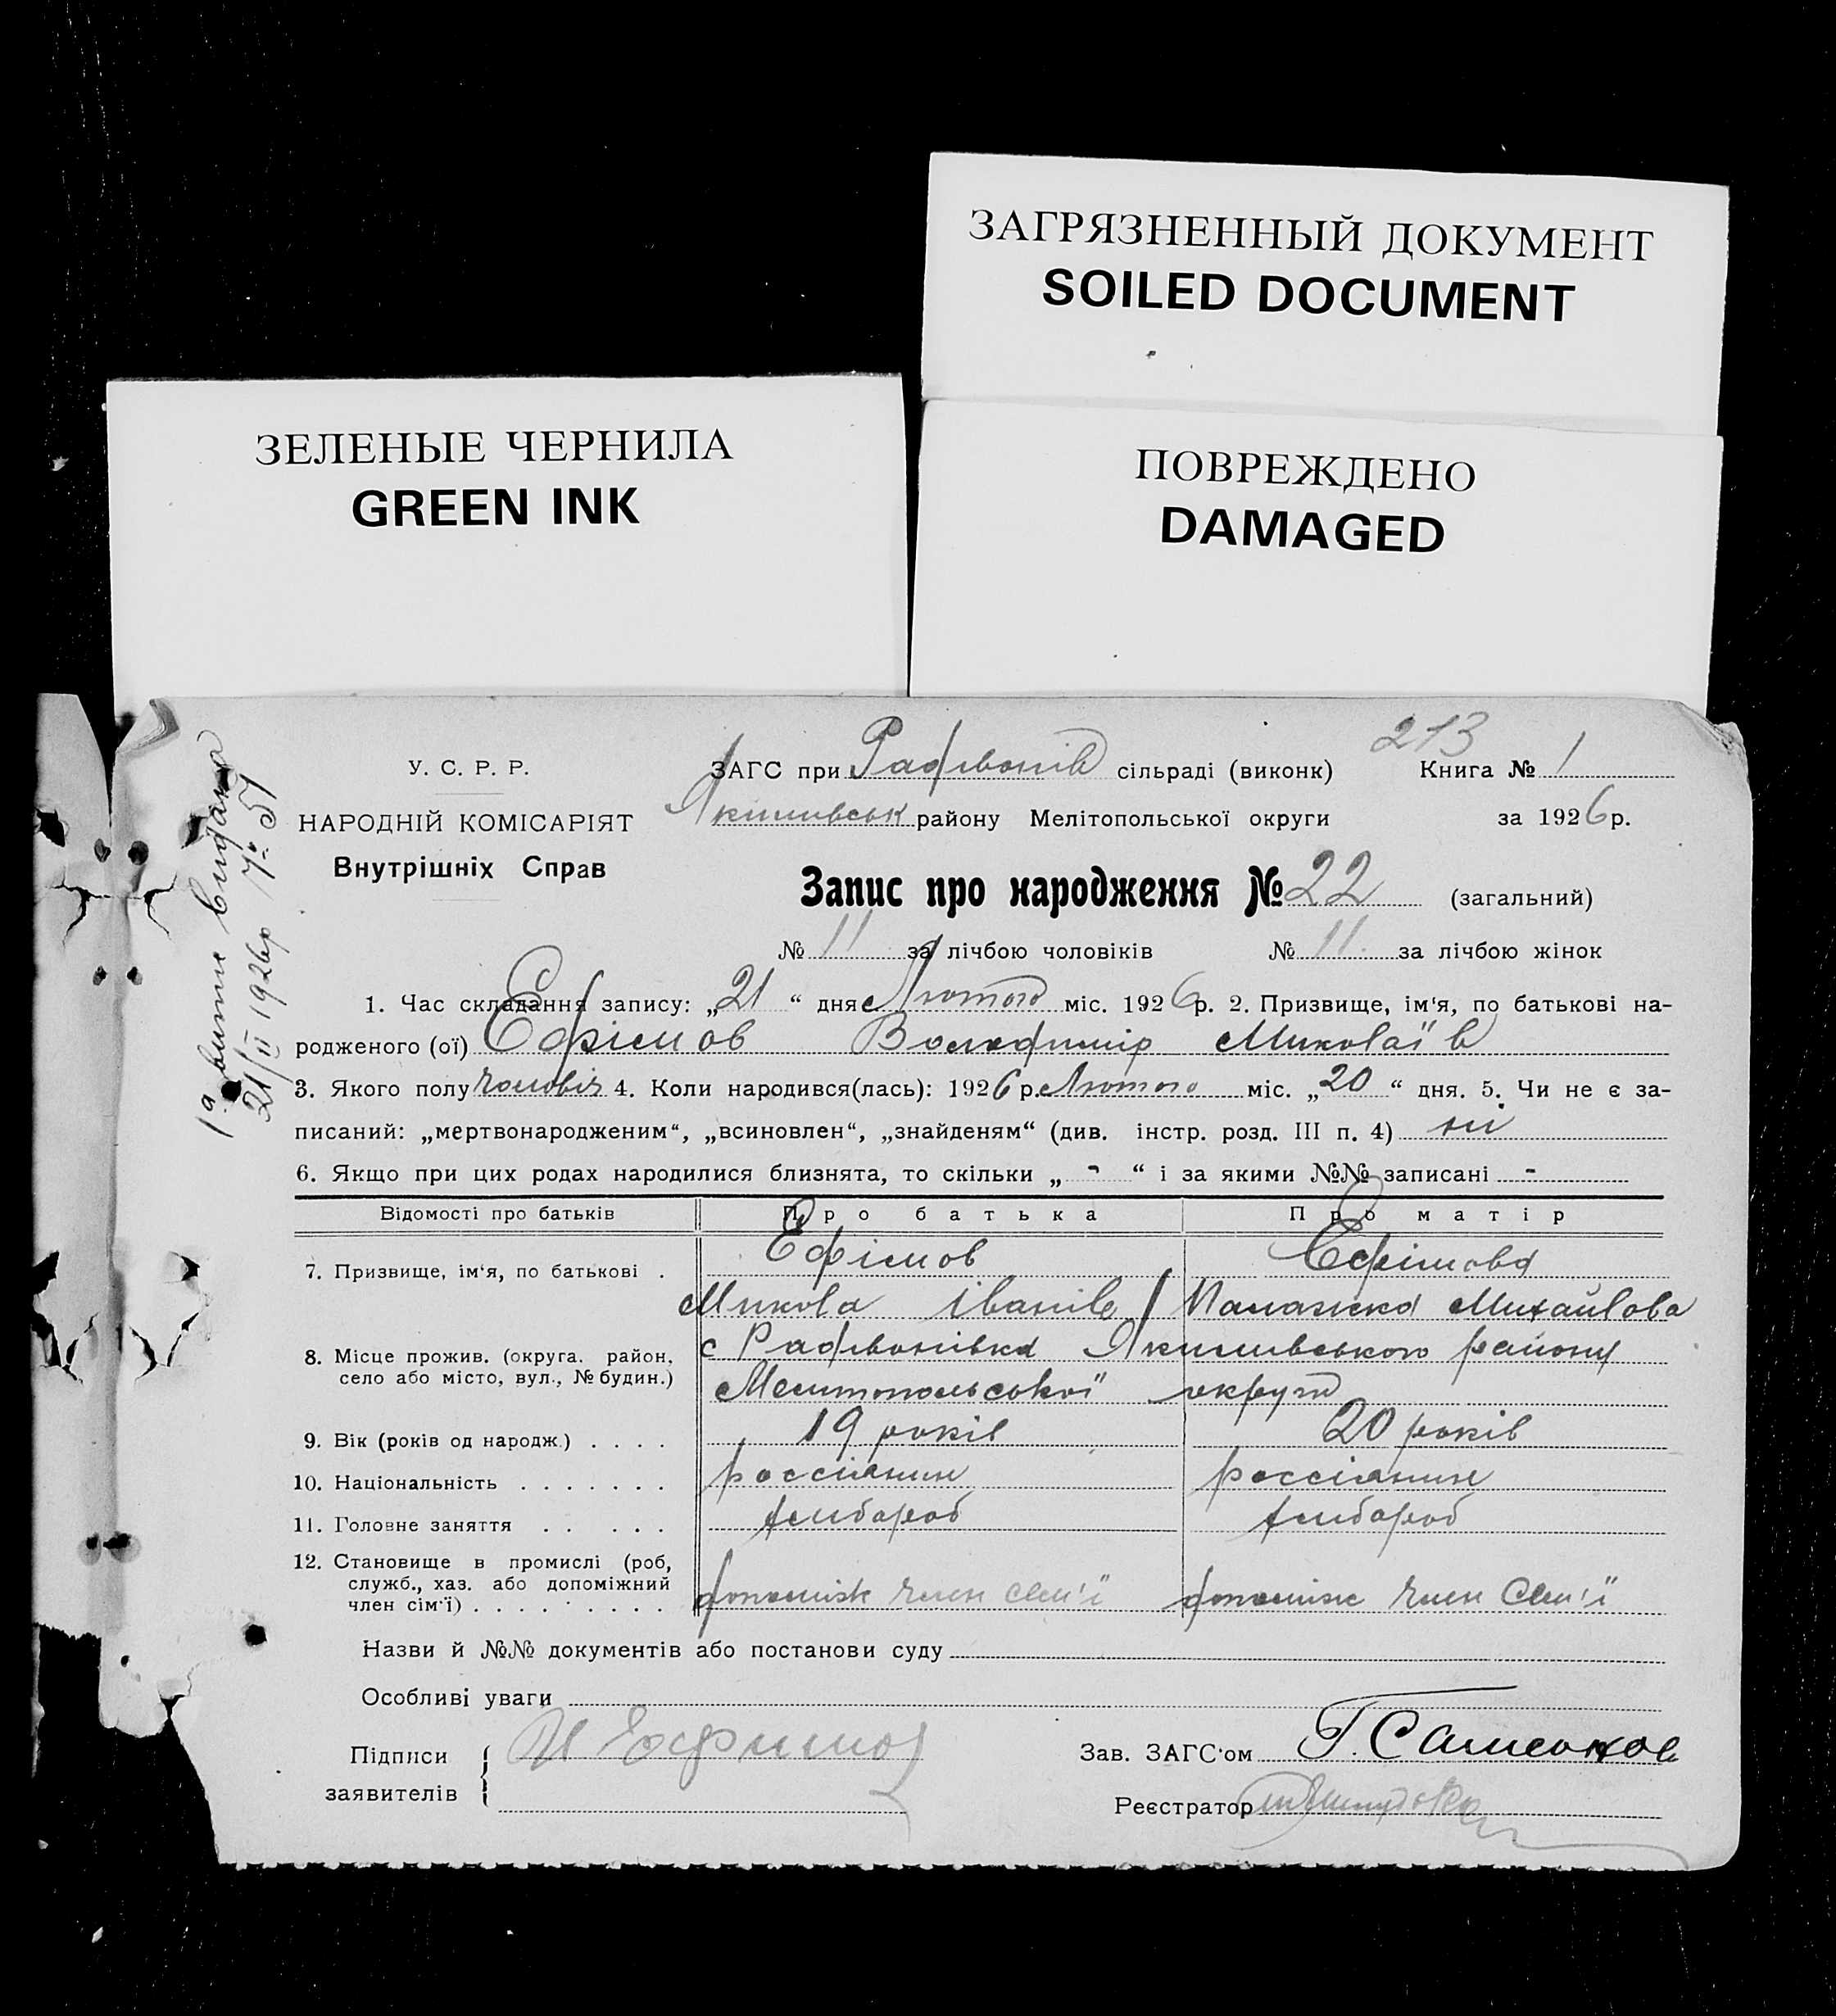 ЗАГРЯЗНЕННЫЙ ДОКУМЕНТ
SOILED DOCUMENT
ЗЕЛЕНЫЕ ЧЕРНИЛА
GREEN INK
ПОВРЕЖДЕНО
DAMAGED
213
У. С. Р. Р.
НАРОДНІЙ КОМІСАРІЯТ
Внутрішніх Справ
ЗАГС при Радивонів сільраді (виконк) Книга № 1
Якимивськ району Мелітопольської округи за 1926 р.
Запис про народження № 22 (загальний)
№ 11 за лічбою чоловіків № 11 за лічбою жінок
1а витис видана
21/II 1926р № 51
1. Час складання запису: „21“ дня Лютого міс. 1926 р. 2. Призвище, ім'я, по батькові на-
родженого (ої) Ефімов Володимир Миколаїв
3. Якого полу чоловіч 4. Коли народився(лась): 1926 р. Лютого міс. „20“ дня. 5. Чи не є за-
писаний: „мертвонародженим“, „всиновлен“, „знайденям“ (див. інстр. розд. III п. 4) ні
6. Якщо при цих родах народилися близнята, то скільки „ - “ і за якими №№ записані -
Відомості про батьків Про батька Про матір
7. Призвище, ім'я, по батькові . Ефімов Ефімова
Микола Іванів Палажка Михайлова
8. Місце прожив. (округа. район, село або місто, вул., № будин.) с Радивонівка Якимивського району
Мелитопольської округи
9. Вік (років од народж.) . . . . 19 років 20 років
10. Національність . . . . . . . россіянин россіянин
11. Головне заняття . . . . . хлібороб хлібороб
12. Становище в промислі (роб, служб., хаз. або допоміжний член сім'ї) . . . . . . . . . допоміжн член сем'ї допоміжн член сем'ї
Назви й №№ документів або постанови суду
Особливі уваги
Підписи заявителів Н Ефимов
Зав. ЗАГС'ом Г. Самсонов
Реєстратор